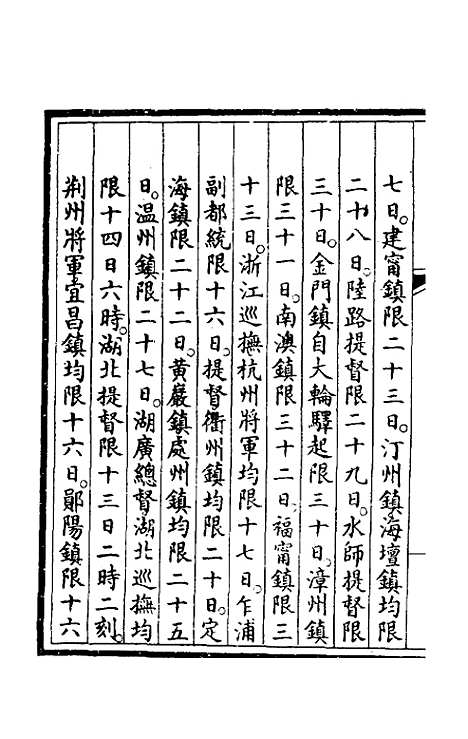 七日。建甯鎮限二十三日。汀州鎮海壇鎮均限
二十八日。陸路提督限二十九日。水師提督限
三十日。金門鎮自大輪驛起限三十日。漳州鎮
限三十一日。南澳鎮限三十二日。福甯鎮限三
十三日。浙江巡撫杭州將軍均限十七日。乍浦
副都統限十六日。提督衢州鎮均限二十日。定
海鎮限二十二日。黃巖鎮處州鎮均限二十五
日。温州鎮限二十七日。湖廣總督湖北巡撫均
限十四日六時。湖北提督限十三日二時二刻。
荊州將軍宜昌鎮均限十六日。鄖陽鎮限十六